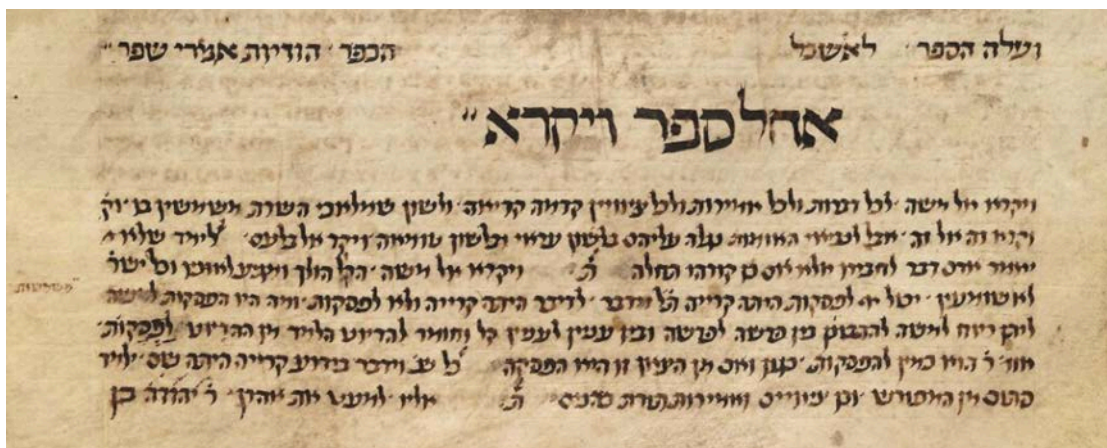 ועלה הספר לאשכל הכפר הודיות אמרי שפר
אחל ספר ויקרא
ויקרא אל משה לכל דברות ולכל אמירות ולכל ציוויין קדמה קריאה לשון שמלאכי השרת משמשין בו וק
וקרא זה אל זה אבל לנביאי האומות נגלה עליהם בלשון עראי ובלשון טומאה ויקר אל בלעם לימד שלא י
יאמר אדם דבר לחבירו אלא אם כן קורהו תחלה ת ויקרא אל משה הקל הולך ומגיע לאזניו וכל ישר
לא שומעין יכל אף לפסקות היתה קרייה תל וידבר לדיבר היתה קרייה ולא לפסקות ומה היו הפסקות
ליתן ריוח למשה להתבונן בין פרשה לפרשה ובין ענין לענין קל וחומר להדיוט הלמד מן ההדיוט לפסקות
כמין להפסקות כגון ואם מן זו היא הפסקה כל וידבר בידוע קרייה היתה שם
מן המפורש ואמירות תורת כהנים ת אליו למעט את אהרן ר יהודה בן